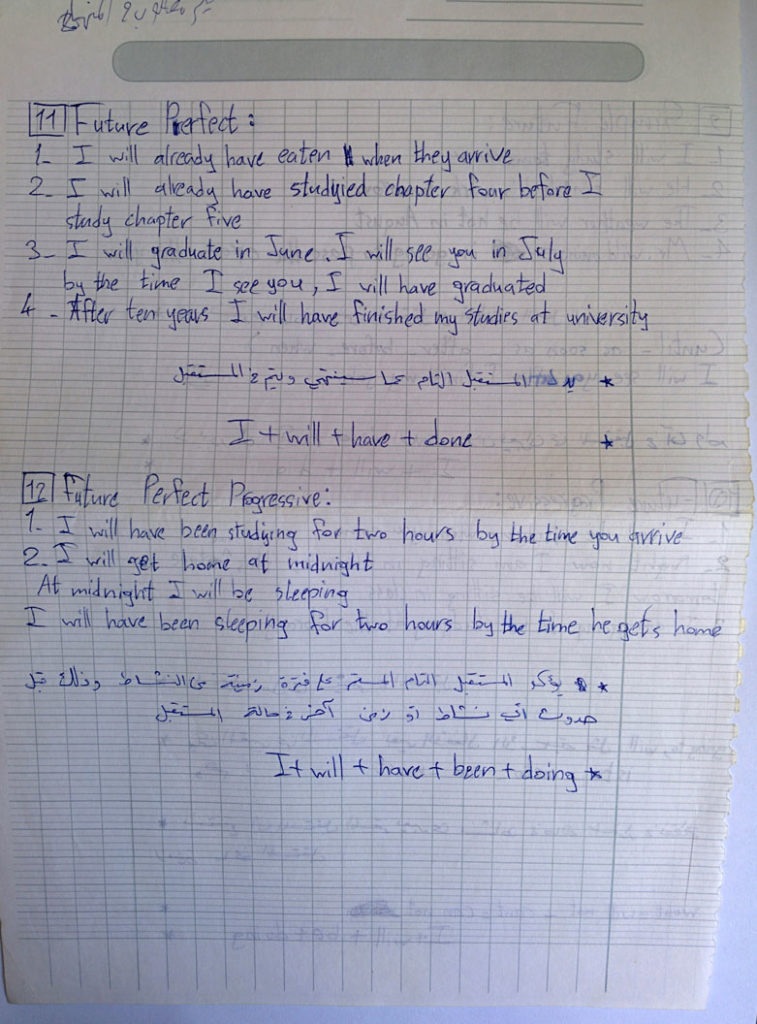 11 Future Perfect :
1- I will already have eaten when they arrive
2- I will already have studyied chapter four before I
study chapter five
3- I will graduate in June. I will see you in July
by the time I see you, I will have graduated
4 - After ten years I will have finished my studies at university
* المستقبل التام سينتهي ويتم في المستقبل
I + will + have + done *
12 Future Perfect Progressive :
1- I will have been studying for two hours by the time you arrive
2- I will get home at midnight
At midnight I will be sleeping
I will have been sleeping for two hours by the time he gets home
* يذكر المستقبل التام المستمر على فترة زمنية من النشاط وذلك قبل
حدوث أي نشاط أو زمن آخر في حالة المستقبل
I + will + have + been + doing *